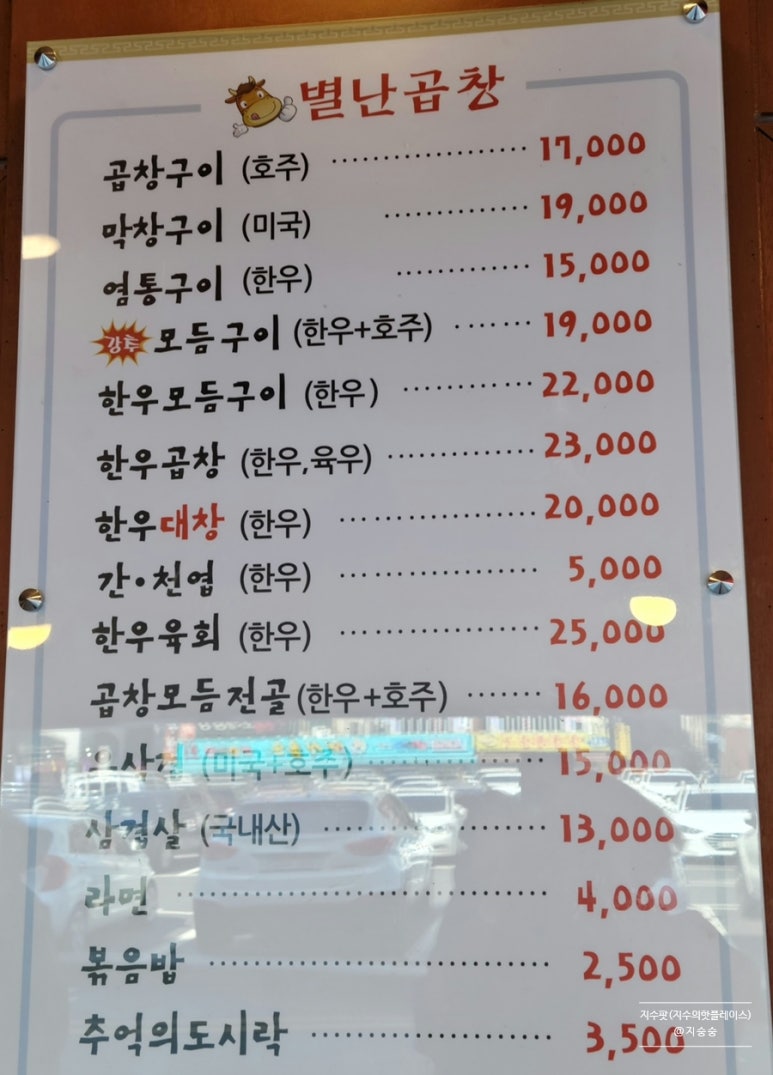 별난곱창
곱창구이 (호주) 17,000
막창구이 (미국) 19,000
염통구이 (한우) 15,000
강추 모듬구이 (한우+호주) 19,000
한우모듬구이 (한우) 22,000
한우곱창 (한우,육우) 23,000
한우대창 (한우) 20,000
간•천엽 (한우) 5,000
한우육회 (한우) 25,000
곱창모듬전골 (한우+호주) 16,000
(미국+호주) 15,000
삼겹살 (국내산) 13,000
라면 4,000
볶음밥 2,500
추억의도시락 3,500
지수팟(지수의핫플레이스)
@지숭숭